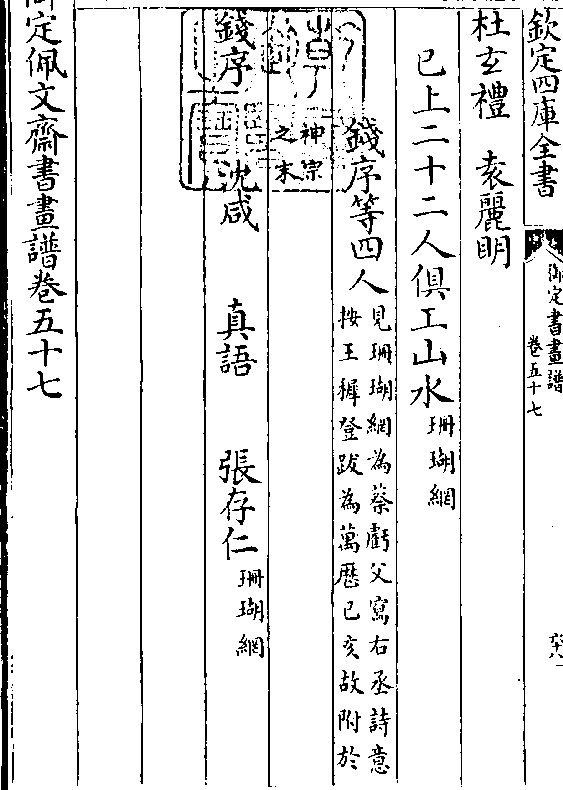 欽定四庫全書
御定書畫譜
卷五十七
杜玄禮　袁麗明
已上二十二人俱工山水珊瑚網
錢序等四人見珊瑚網為蔡虧父寫右丞詩意
按王穉登跋為萬歷已亥故附於
神宗
之末
錢序　沈咸　真語　張存仁珊瑚網
御定佩文齋書畫譜卷五十七